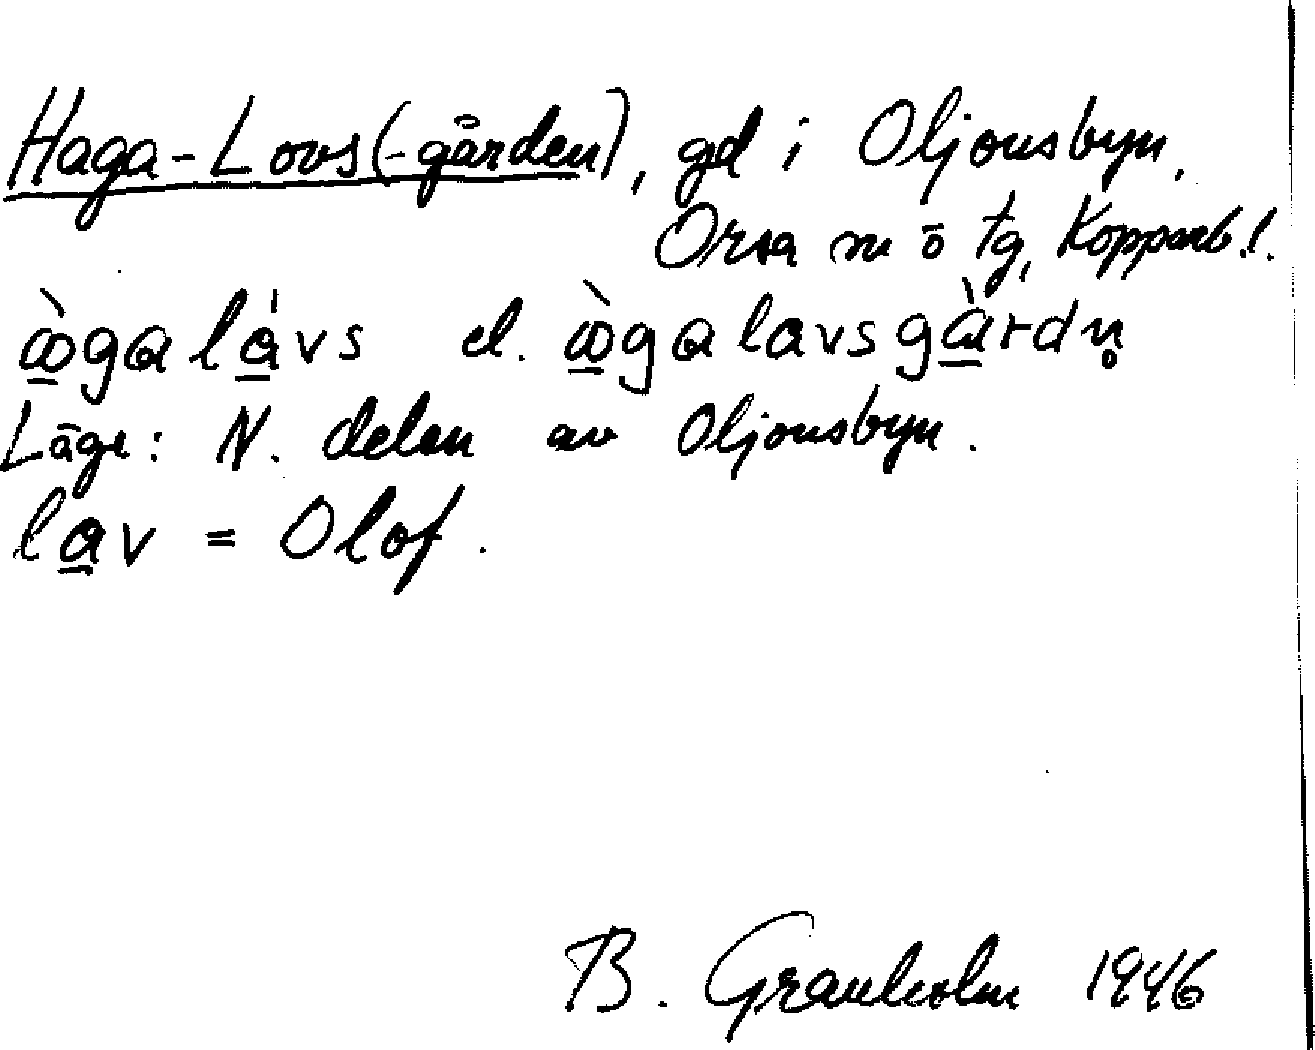 Haga-Lovs(-gården), gd i Oljonsbyn,
Orsa sn ö tg, Kopparb. l.
ὼ̲ga lá̲vs el. ὼ̲ga lavsgà̲rdn̥
Läge: N. delen av Oljonsbyn.
la̲v = Olof.
B. Granholm 1946